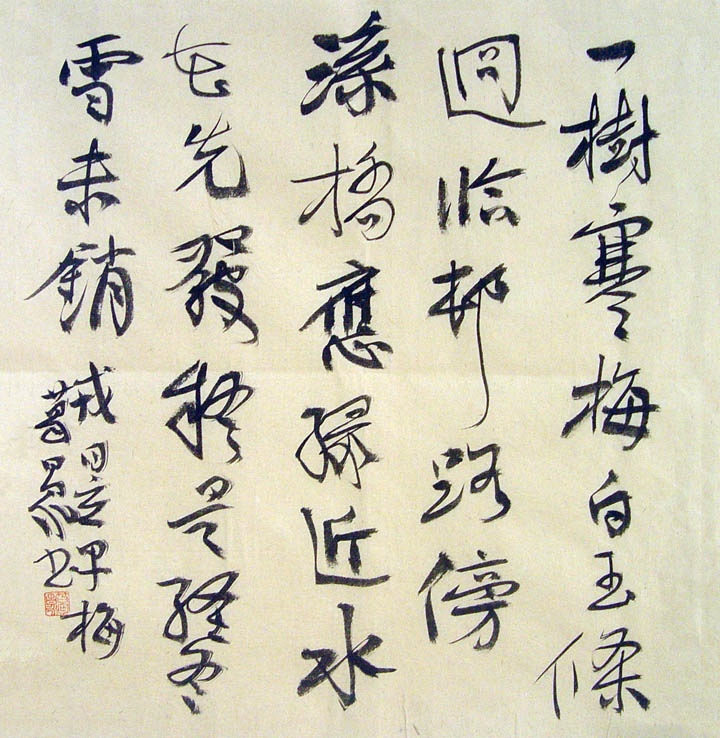 一樹寒梅白玉條
逈臨邨路傍
溪橋應緣近水
花先發疑是經冬
雪未銷 戎昱早梅
葛書